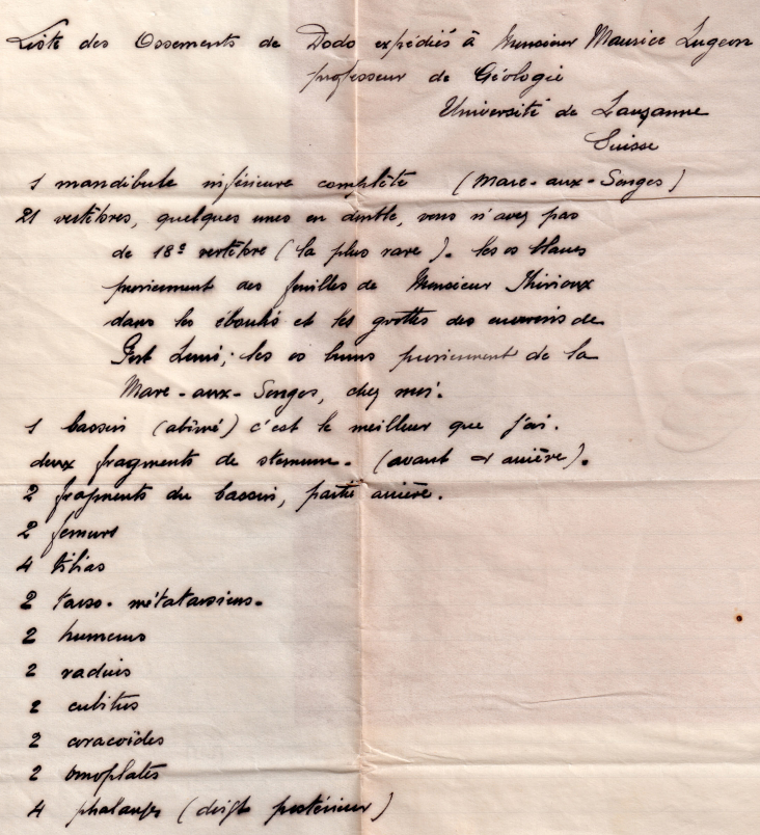 Liste des Ossements de Dodo expédiés à Monsieur Maurice Lugeon
professeur de Géologie
Université de Lausanne
Suisse
1 mandibule inférieure complète (Mare-aux-Songes)
21 vertèbres, quelques unes en double, vous n'avez pas
de 18e vertèbre (la plus rare). les os blancs
proviennent des fouilles de Monsieur Thirioux
dans les éboulis et les grottes des environs de
Port Louis; les os bruns proviennent de la
Mare-aux-Songes, chez moi.
1 bassin (abîmé) c'est le meilleur que j'ai.
deux fragments de sternum. (avant et arrière).
2 fragments du bassin, partie arrière.
2 femurs
4 tibias
2 tarso-métatarsiens.
2 humerus
2 radius
2 cubitus
2 coracoïdes
2 omoplates
4 phalanges (doigt postérieur)